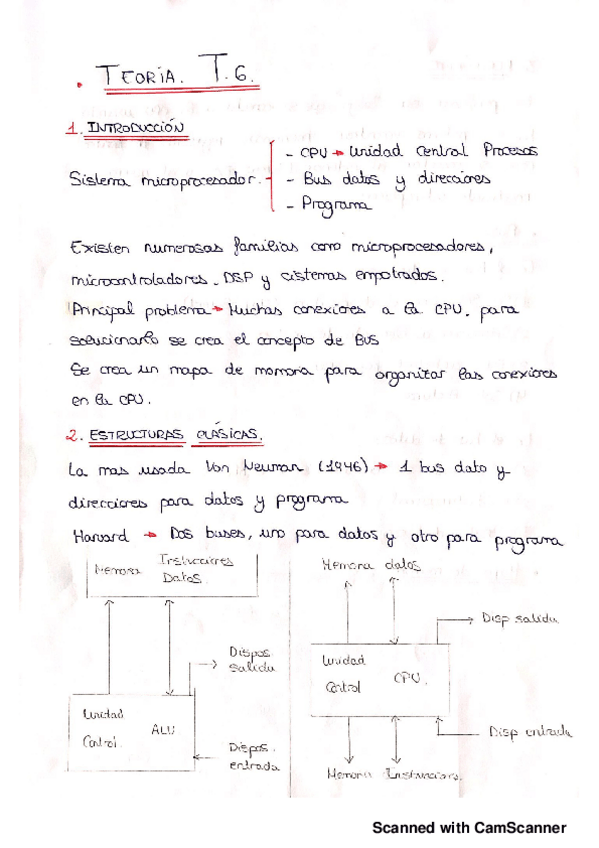 . TEORÍA. T.6.
1. INTRODUCCIÓN
Sistema microprocesador.
- CPU → Unidad Central Procesos
- Bus datos y direcciones
- Programa
Existen numerosas familias como microprocesadores,
microcontroladores, DSP y sistemas empotrados.
Principal problema → Muchas conexiones a la CPU, para
solucionarlo se crea el concepto de BUS
Se crea un mapa de memoria para organizar las conexiones
en la CPU.
2. ESTRUCTURAS CLÁSICAS.
La mas usada Von Neuman (1946) → 1 bus dato y
direcciones para datos y programa
Harvard → Dos buses, uno para datos y otro para programa
Memoria Instrucciones
Datos
Dispos.
salida
Unidad
Control.
ALU
Dispos.
entrada
Memoria datos
Disp salida
Unidad
Control
CPU.
Disp entrada
Memoria Instrucciones
Scanned with CamScanner